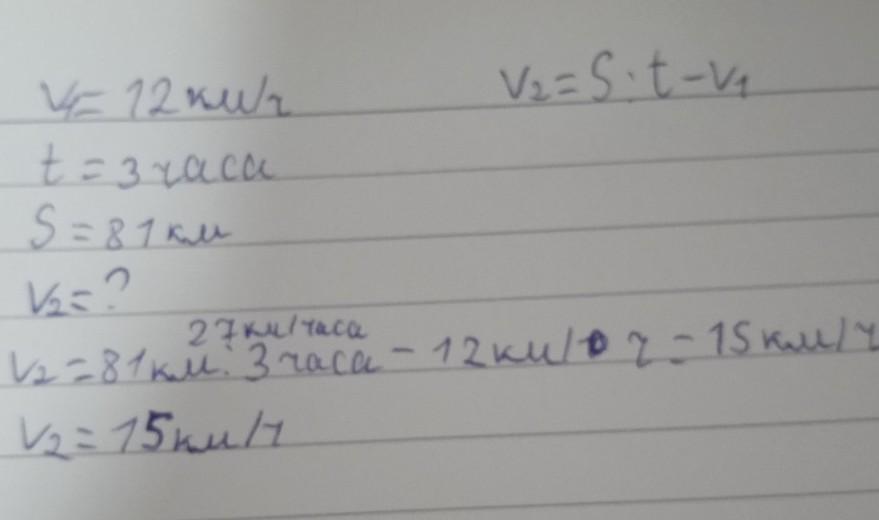 V₁ = 12 км/ч
V₂ = S : t - V₁
t = 3 часа
S = 81 км
V₂ = ?
27 км/часа
V₂ = 81 км : 3 часа - 12 км/ч = 15 км/ч
V₂ = 15 км/ч